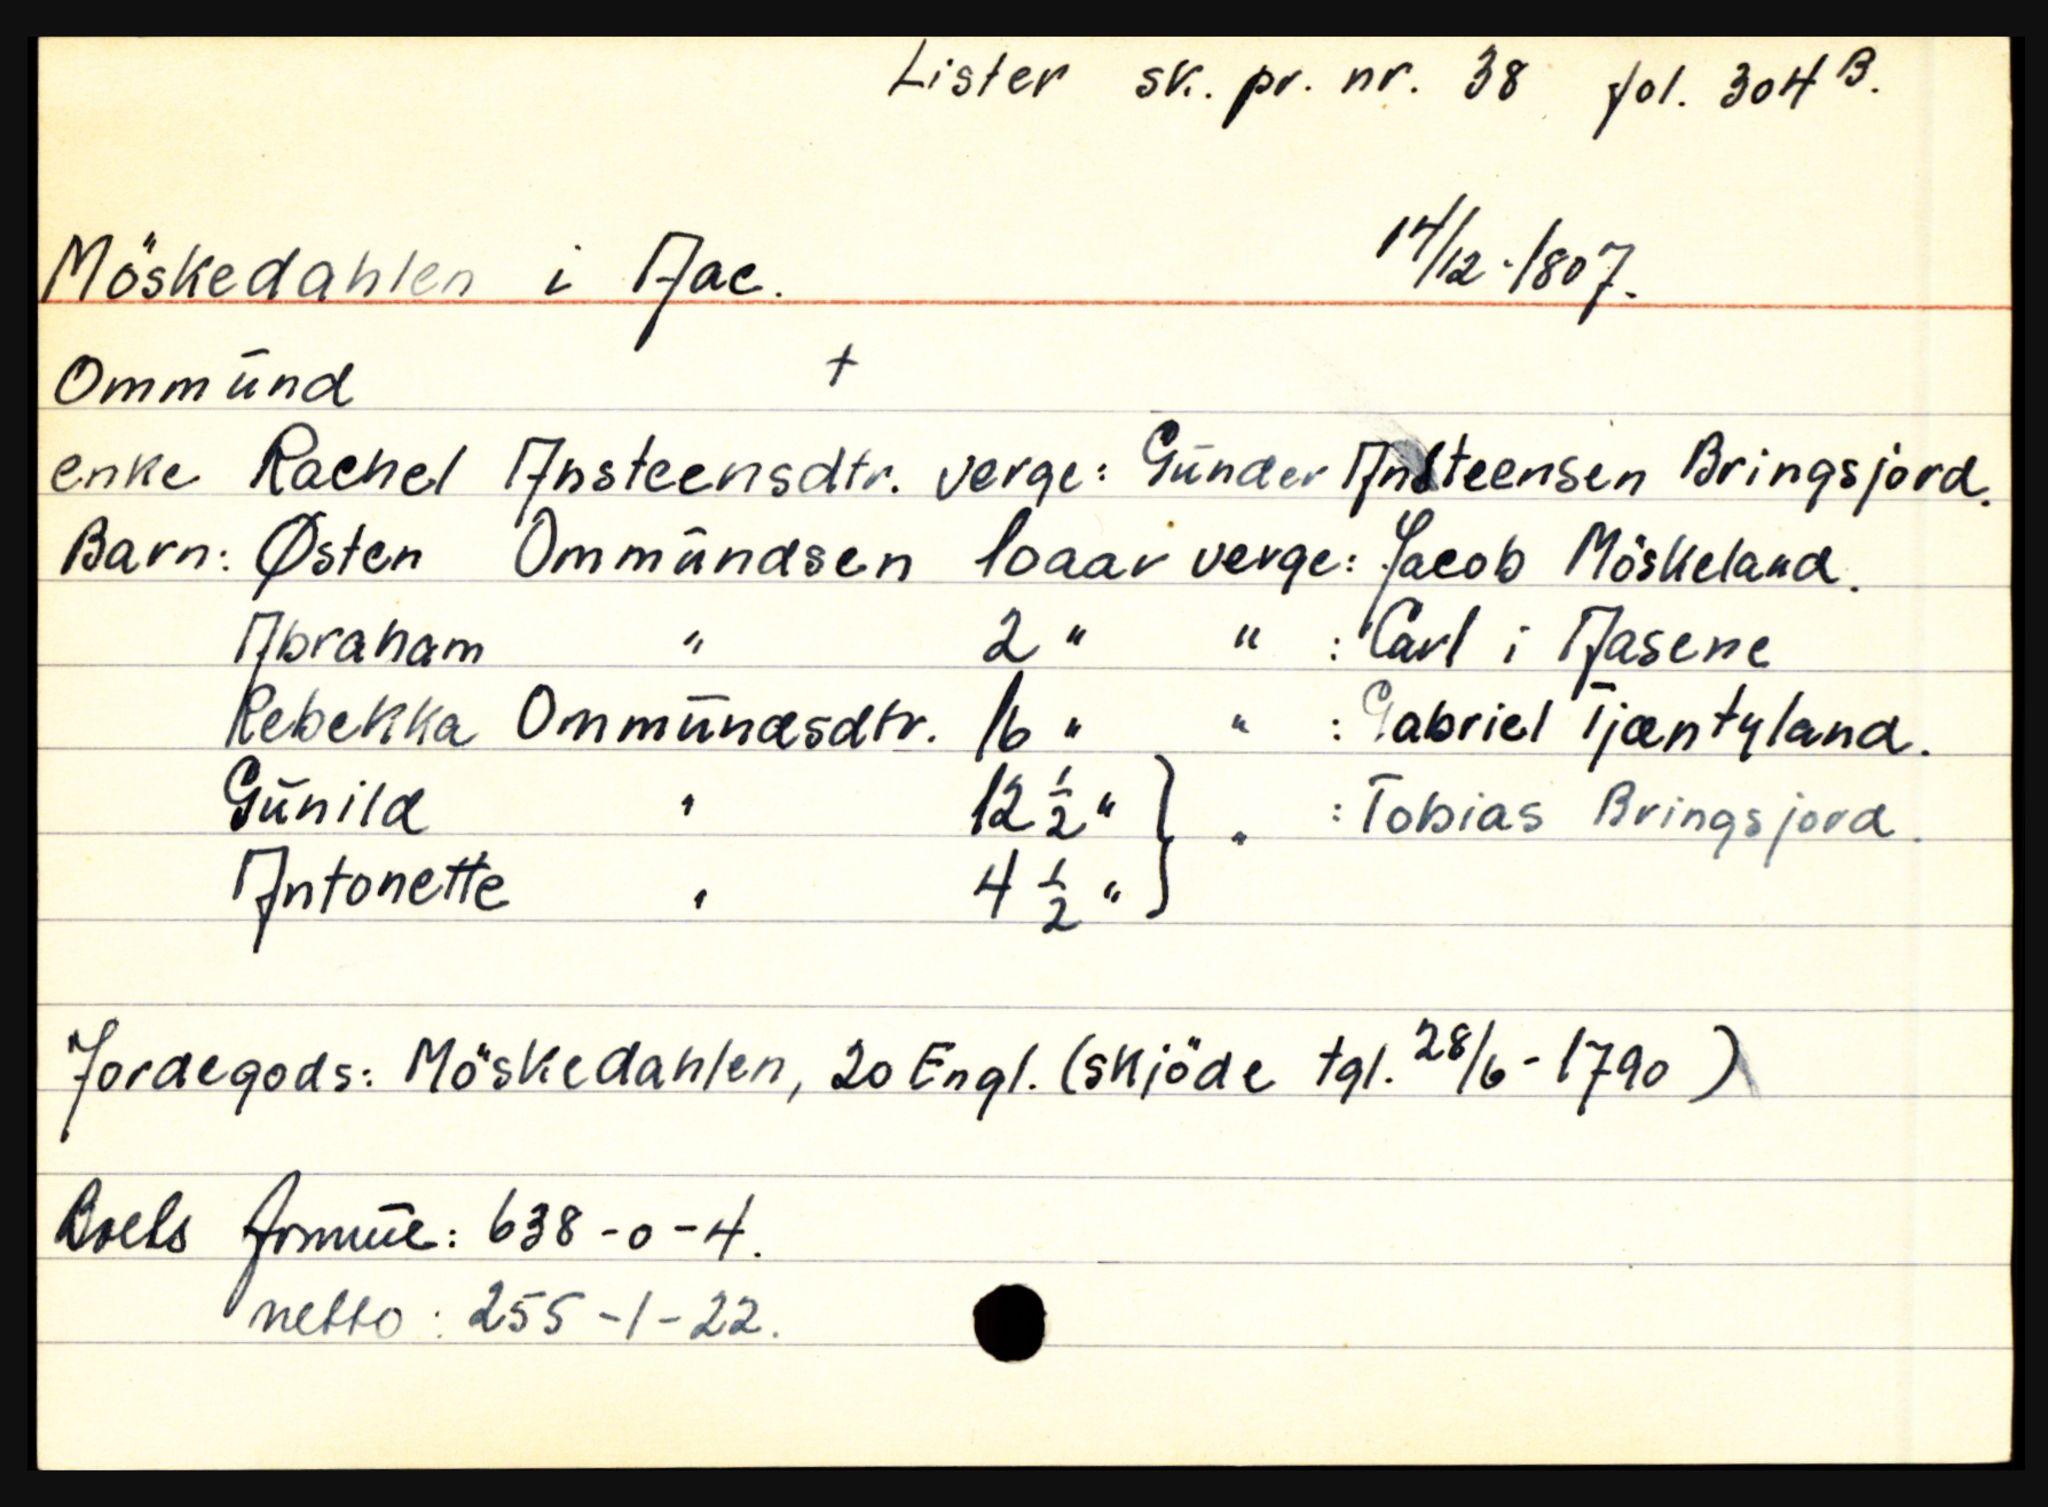 Lister sk. pr. nr. 38 fol. 304 B.
Möskedahlen i Aac. 14/12-1807.
Ommünd +
enke Rachel Ansteensdtr. verge: Günder Ansteensen Bringsjord.
Barn: Østen Ommündsen 10aar verge: Jacob Möskeland.
Abraham " 2 " " : Carl i Aasene
Rebekka Ommündsdtr. 16 " " : Gabriel Tjæntyland.
Günild " 12 1/2 " } " : Tobias Bringsjord.
Antonette " 4 1/2 "
Jordegods: Möskedahlen, 20 Engl. (skjöde tgl. 28/6-1790)
Boets formüe: 638-0-4.
netto: 255-1-22.